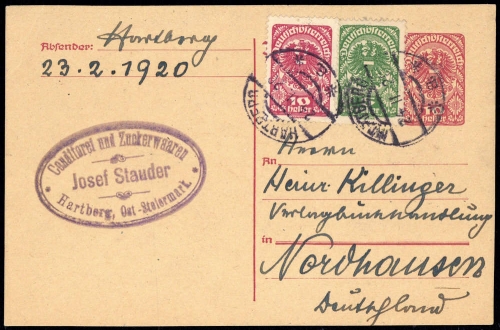 Absender: Hartberg
23.2.1920
Conditorei und Zuckerwaaren
Josef Stauder
Hartberg, Ost-Steiermark.
Deutschösterreich
10
Heller
Deutschösterreich
Deutschösterreich
Heller
HARTBERG
HARTBERG
An
Herrn
Heinr. Killinger
Verlagsbuchhandlung
in
Nordhausen
Deutschland